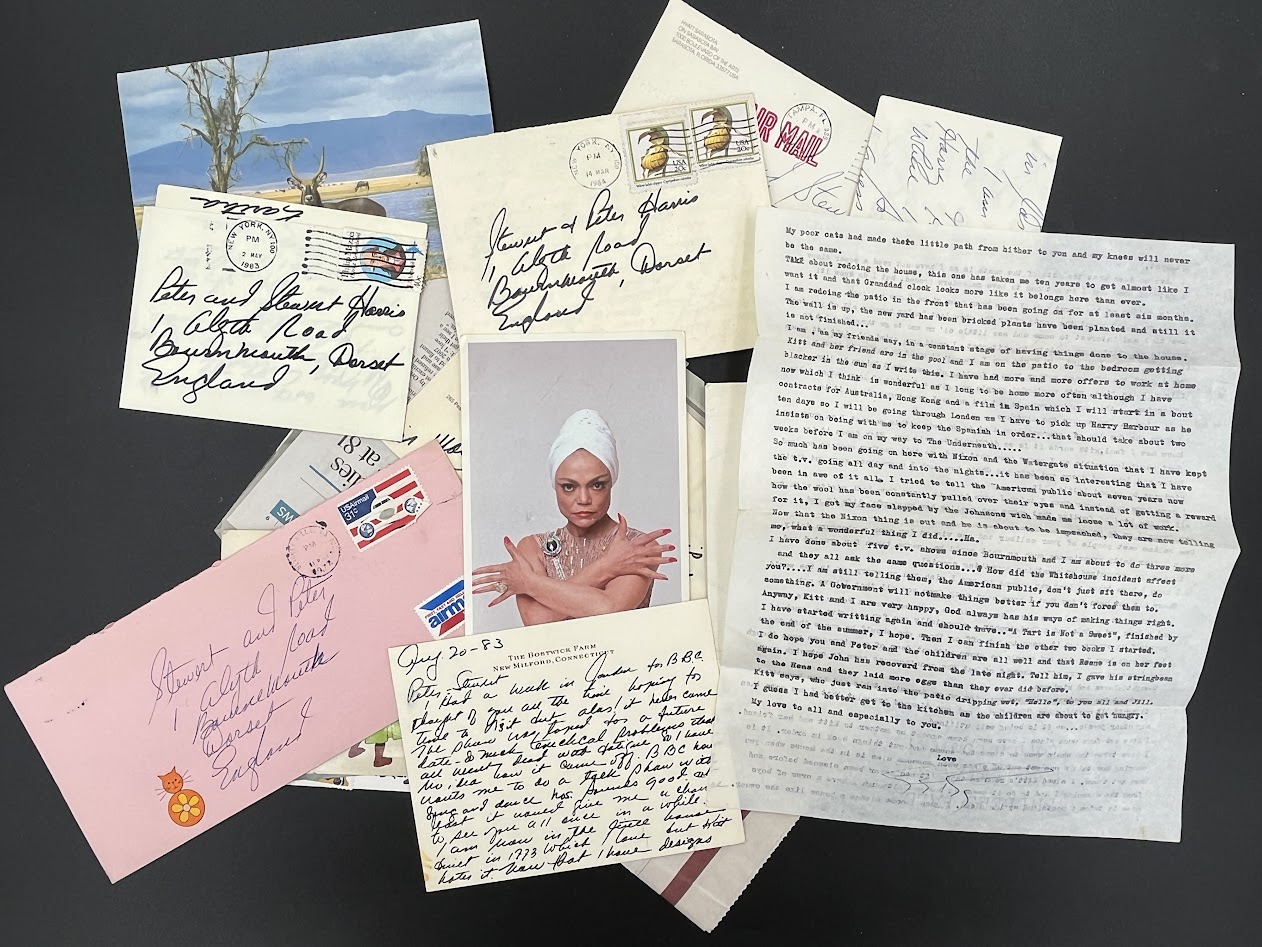 HYATT SARASOTA
ON SARASOTA BAY
1000 BOULEVARD OF THE ARTS
SARASOTA, FLORIDA 33577 USA
AIR MAIL
TAMPA, FL
PM
Stew
in
the
I am
Harris
Eartha
NEW YORK, NY 100
PM
2 MAY
1983
Peter and Stewart Harris
1 Alyth Road
Bournmouth, Dorset
England
NEW YORK, NY 100
PM
14 MAR
1984
USA
20c
USA
20c
Stewart & Peter Harris
1 Alyth Road
Bournemouth, Dorset
England
dies
at 81
NEWS
USAirmail
31c
PM
Stewart and Peter
1 Alyth Road
Bournemouth
Dorset
England
airm
Aug. 20-83
THE BOSTWICK FARM
NEW MILFORD, CONNECTICUT
Peter - Stewart
I had a week in London for BBC.
thought of you all the time hoping for
time to visit but alas! it never came
The show was taped for a future
date - so much technical problems that
all went dead with fatigue so I have
no idea how it came off. BBC now
wants me to do a talk show with
song and dance too. Sounds good at
least it would give me a chance
to see you all once in a while.
I am now in the little house
built in 1773 which I love but Kitt
hates it. Now that I have designs
My poor cats had made their little path from hither to you and my knees will never
be the same.
Talk about redoing the house, this one has taken me ten years to get almost like I
want it and that Granddad clock looks more like it belongs here than ever.
I am redoing the patio in the front that has been going on for at least six months.
The wall is up, the new yard has been bricked plants have been planted and still it
is not finished...
I am ,as my friends say, in a constant stage of having things done to the house.
Kitt and her friend are in the pool and I am on the patio to the bedroom getting
blacker in the sun as I write this. I have had more and more offers to work at home
now which I think is wonderful as I long to be home more often although I have
contracts for Australia, Hong Kong and a film in Spain which I will start in a bout
ten days so I will be going through London as I have to pick up Harry Harbour as he
insists on being with me to keep the Spanish in order...that should take about two
weeks before I am on my way to The Underneath.....
So much has been going on here with Nixon and the Watergate situation that I have kept
the t.v. going all day and into the nights...it has been so interesting that I have
been in awe of it all. I tried to tell the American public about seven years now
how the wool has been constantly pulled over their eyes and instead of getting a reward
for it, I got my face slapped by the Johnsons wich made me loose a lot of work.
Now that the Nixon thing is out and he is about to be impeached, they are now telling
me, what a wonderful thing I did.....Ha.
I have done about five t.v. shows since Bournmouth and I am about to do three more
and they all ask the same questions...@ How did the Whitehouse incident affect
you?....I am still telling them, the American public, don't just sit there, do
something. A Government will notmake things better if you don't force them to.
Anyway, Kitt and I are very happy, God always has his ways of making things right.
I have started writting again and should have.."A Tart is Not a Sweet", finished by
the end of the summer, I hope. Then I can finish the other two books I started.
I do hope you and Peter and the children are all well and that Roane is on her feet
again. I hope John has recoverd from the late night. Tell him, I gave his stringbean
to the Hens and they laid more eggs than they ever did before.
Kitt says, who just ran into the patio dripping wet, "Hello", to you all and Jill.
I guess I had better get to the kitchen as the children are about to get hungry.
My love to all and especially to you.
Love